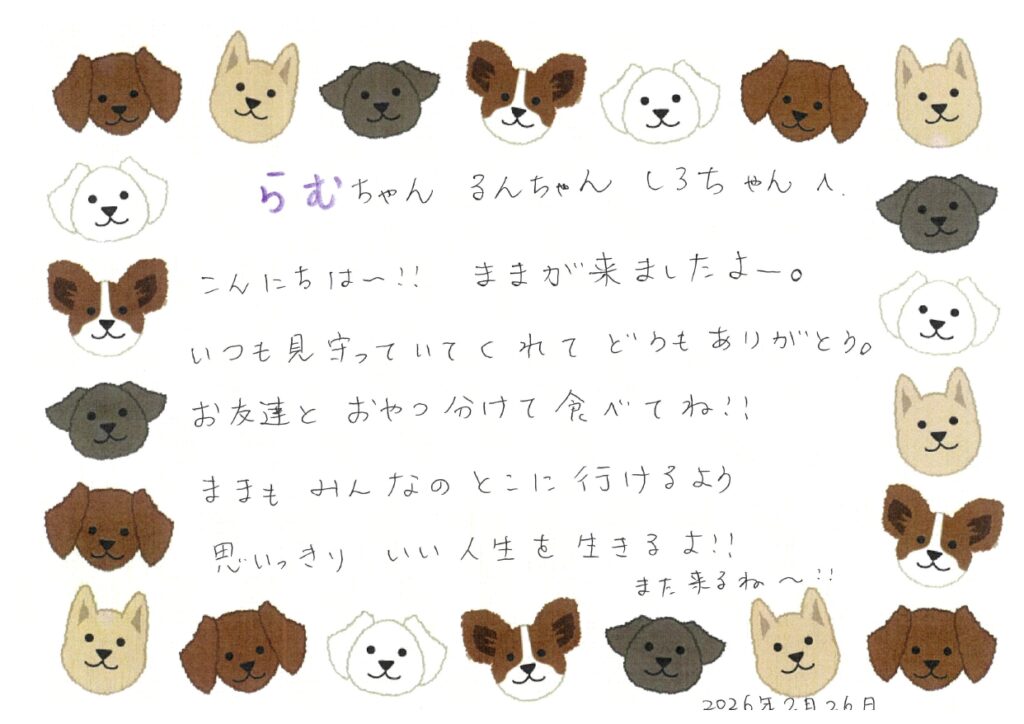 らむちゃん るんちゃん しろちゃんへ.
こんにちは〜!! ままが来ましたよー。
いつも見守っていてくれてどうもありがとう。
お友達と おやつ分けて食べてね!!
ままも みんなのとこに行けるよう
思いっきり いい人生を生きるよ!!
また来るね〜!!
2026年2月26日